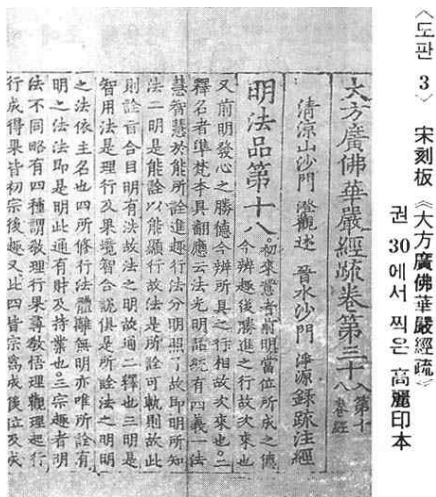 〈도판 3〉 宋刻板《大方廣佛華嚴經疏》
권 30에서 찍은 高麗印本
大方廣佛華嚴經疏卷第三十 入第十八卷經
清涼山沙門 澄觀述 晉水沙門 淨源錄疏注經
明法品第十八 。初來意者前明當位所成之德今辨趣後勝進之行故次來也
又前明發心之勝德今辨所具之行相故次來也。二
釋名者準梵本具翻應云法光明品統有四義一法
慧智慧於能所詮進趣行法分明照了故即明所知
法二明是能詮以能顯行故法是所詮可軌則故此
則詮旨合目明有法故法之明故通二釋也三明是
智用法是理行及果境智合說俱是所詮法之明明
之法依主名也四所修行法體離無明亦唯所詮有
明之法法即是明此通有財及持業也。三宗趣者明
法不同略有四種謂教理行果尋教悟理觀理起行
行成得果皆初宗後趣又此四皆宗爲成後位及成